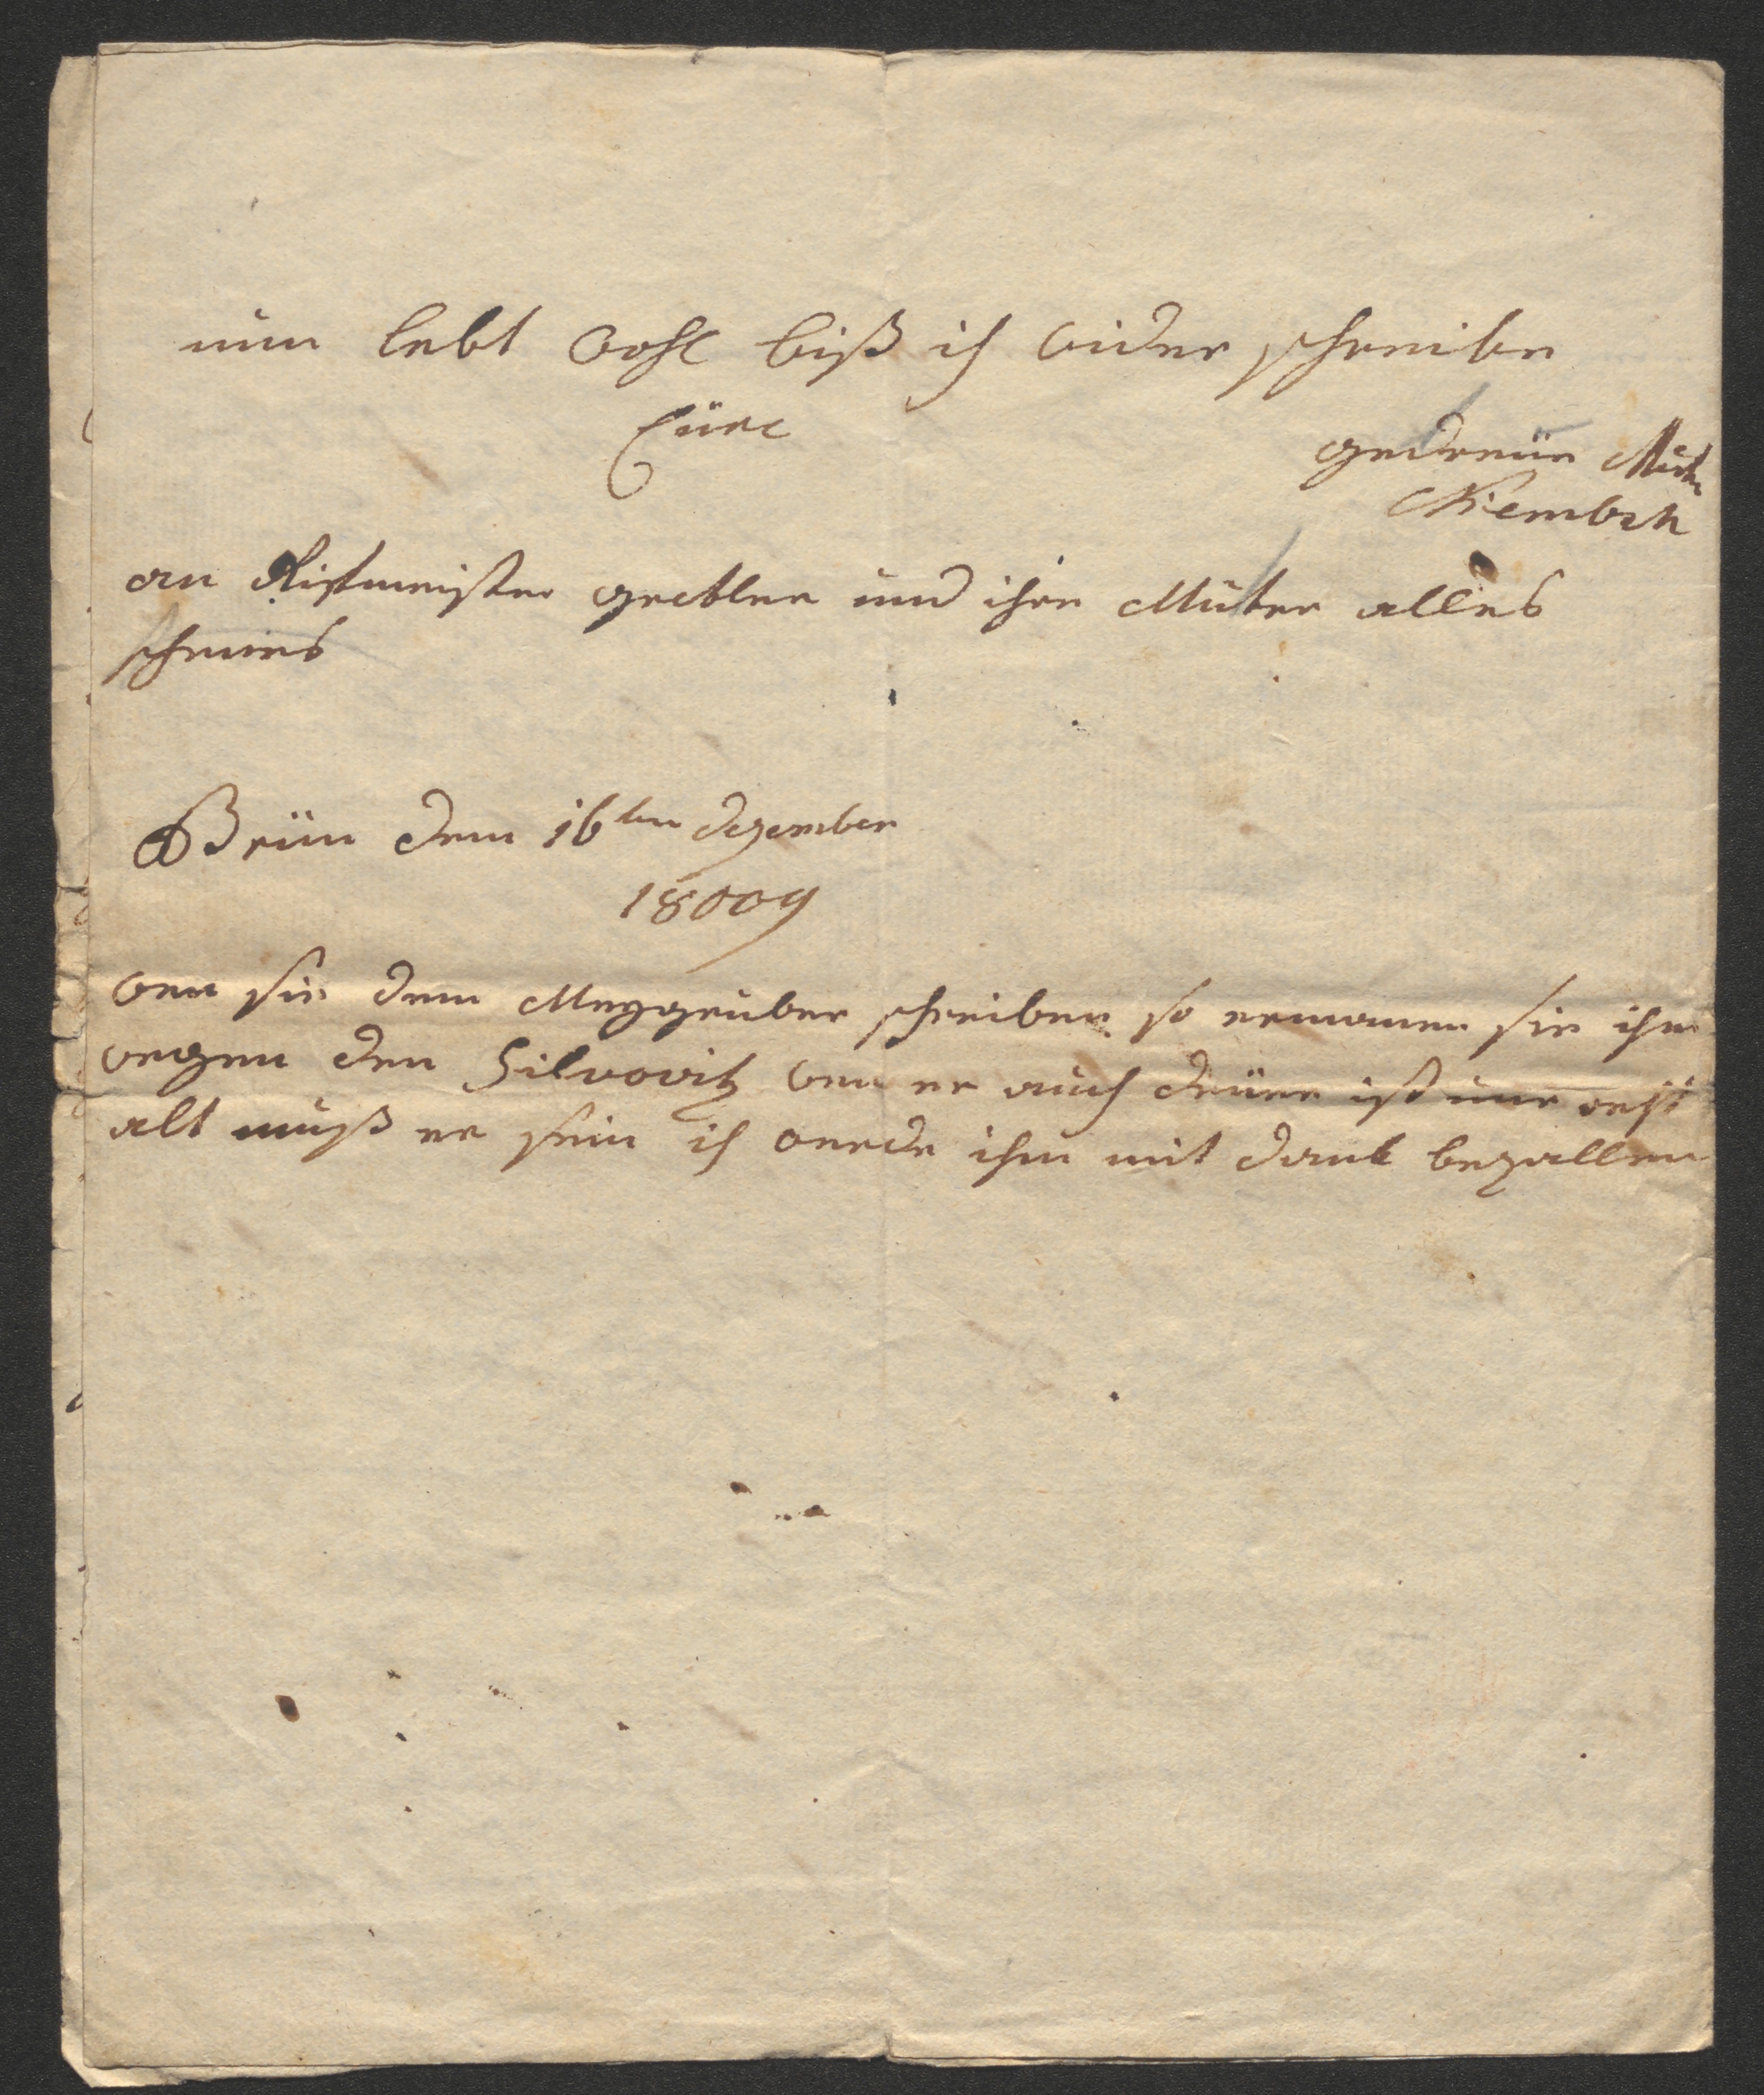 nun lebt wohl biß ich wider schreibe
Eüre
gedreüe Muter
Niembsch
an Ritmeister greibler und ihre Muter alles
schenes
Brün den 16ten dezember
18009
wen sie dem Mezgruber schreiben so ermanen sie ihn
wegen den Silvovitz wen er auch deüer ist nur recht
alt muß er sein ich werde ihm mit dank bezallen